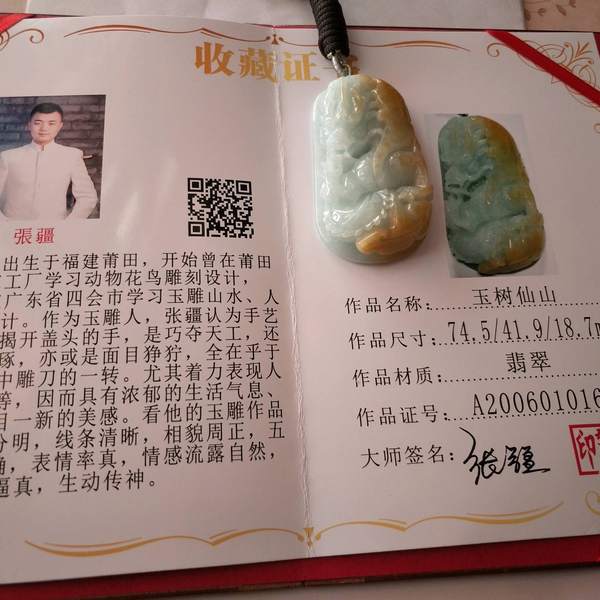 收藏证
張疆
出生于福建莆田，开始曾在莆田
工厂学习动物花鸟雕刻设计，
广东省四会市学习玉雕山水、人
计。作为玉雕人，张疆认为手艺
揭开盖头的手，是巧夺天工，还
琢，亦或是面目狰狞，全在乎于
中雕刀的一转。尤其着力表现人
等，因而具有浓郁的生活气息、
目一新的美感。看他的玉雕作品
分明，线条清晰，相貌周正，五
确，表情率真，情感流露自然，
逼真，生动传神。
作品名称：玉树仙山
作品尺寸：74.5/41.9/18.7m
作品材质：翡翠
作品证号：A200601016
大师签名：张疆
印